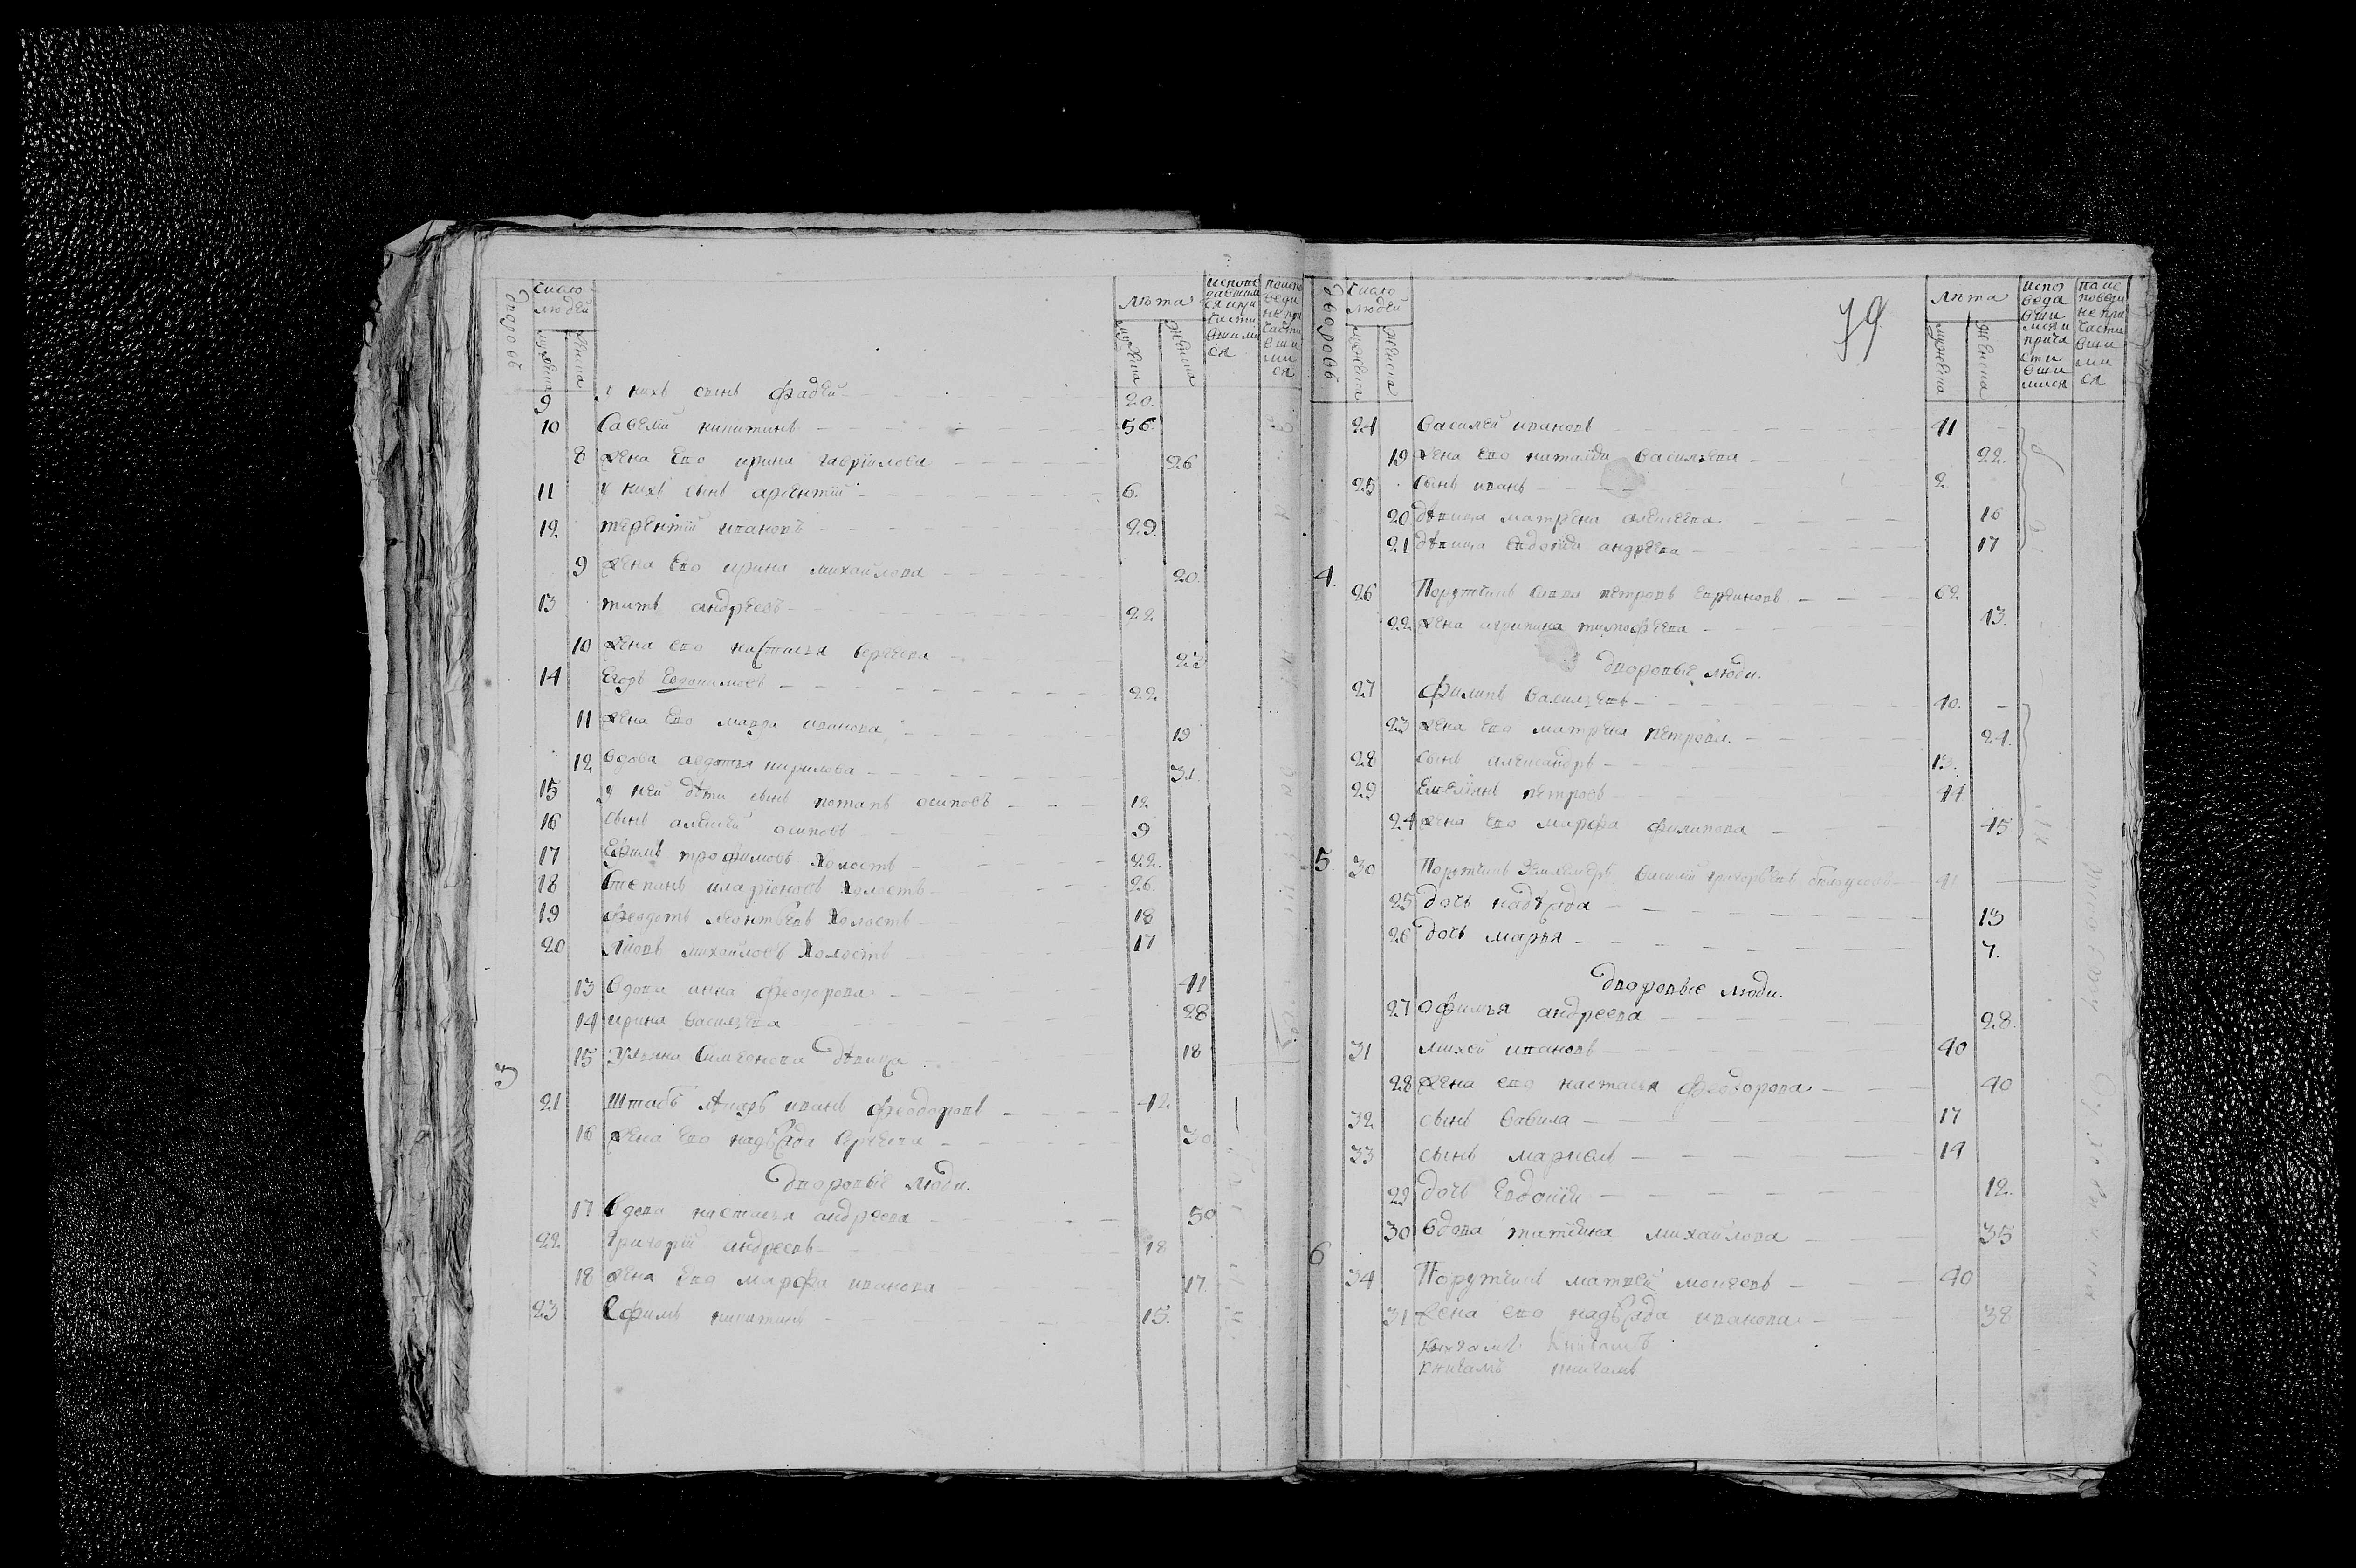 дворовъ
число людей
мужеска
женска
лѣта
мужеска
женска
9 у нихъ сынъ фадѣй 20.
10 Савелій никитинъ 56.
8 жена Ево ирина гавріилова 26
11 у нихъ сынъ арсентій 6.
12 терентій ивановъ 29.
9 жена Ево ирина михаилова 20.
13 титъ андреевъ 22
10 жена ево настасья Сергеева 23
14 Егоръ Евдокимовъ 22.
11 жена Ево мавра иванова 19
12 вдова авдотья кирилова 31.
15 у ней дѣти сынъ потапъ осиповъ 12
16 сынъ алексей осиповъ 9
17 Ефимъ трофимовъ холостъ 22.
18 Степанъ иларіоновъ холостъ 26.
19 феодотъ леонтьевъ холостъ 18
20 Яковъ михайловъ холостъ 17
13 вдова анна феодорова 41
14 ирина васильева 28
15 Ульяна Симеонова дѣвица 18
3
21 Штабъ иванъ феодоровъ 42
16 жена Ево надѣжда Сергеева 30
дворовые люди.
17 вдова настасья андреева 50
22 Григорій андреевъ 18
18 жена Ево марфа иванова 17.
23 Ефимъ никитинъ 15.
79
дворовъ
число людей
мужеска
женска
лѣта
мужеска
женска
исповедавшимся и причастившимся
по исповеди не причастившимися
24 василей ивановъ 41
19 жена Ево васильева 22.
25 сынъ иванъ 2
20 дѣвица матрена алексеева 16
21 дѣвица Евдокія андреева 17
4.
26 Порутчикъ петровъ 62
22 жена агрипина тимофеева 43.
дворовые люди.
27 филипъ васильевъ 40.
23 жена Ево матрена петрова. 24.
28 сынъ александръ 13.
29 Емельянъ петровъ 44
24 жена Ево марфа филипова 45
5. 30 Порутчикъ василей григорьевъ 41
25 дочь надѣжда 13
26 дочь марья 7.
дворовые люди.
27 офимья андреева 28.
31 михей ивановъ 40
28 жена ево настасья феодорова 40
32 сынъ вавила 17
33 сынъ маркелъ 14
29 дочь Евдокия 12.
30 вдова татіяна михайлова 35
6
34 Порутчикъ матвей 40
31 жена ево надѣжда иванова 38
книгамъ
книгамъ книгамъ